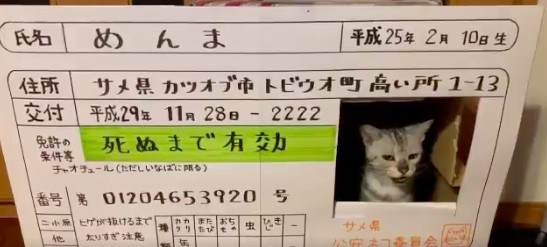 氏名 めんま 平成25年2月10日生
住所 サメ県 カツオブ市 トビウオ町 高い所 1-13
交付 平成29年 11月28日-2222
免許の条件等 死ぬまで有効
チャオチュール(ただしいなばに限る)
番号 第 01204653920 号
二小原 ヒゲが抜けるまで
他 太りすぎ注意
種 カリカリ またたび おもちゃ 虫 ひじき -
サメ県
公安ネコ委員会